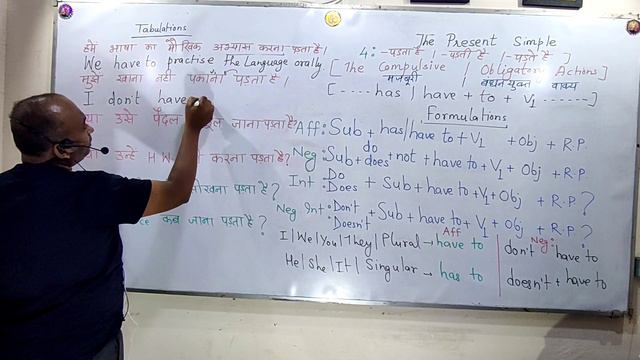 Tabulations
हमें भाषा का मौखिक अभ्यास करना पड़ता है।
We have to practise The Language orally.
मुझे खाना नहीं पकाना पड़ता है।
I don't have
उसे पैदल जाना पड़ता है?
उन्हें H.W. करना पड़ता है?
पड़ता है?
कब जाना पड़ता है?
The Present Simple
4: -पड़ता है | -पड़ती है | -पड़ते है ]
[The Compulsive | Obligatory Actions]
मजबूरी वाक्य
[-----has | have + to + V1 ------]
Formulations
Aff: Sub + has/have to + V1 + Obj + R.P.
Neg: Sub + do does + not + have to + V1 + Obj + R.P.
Int: Do Does + Sub + have to + V1 + Obj + R.P.?
Neg Int: Don't Doesn't + Sub + have to + V1 + Obj + R.P.?
Aff Neg:
I|We|You|They|Plural → have to don't have to
He|She|It|Singular → has to doesn't + have to